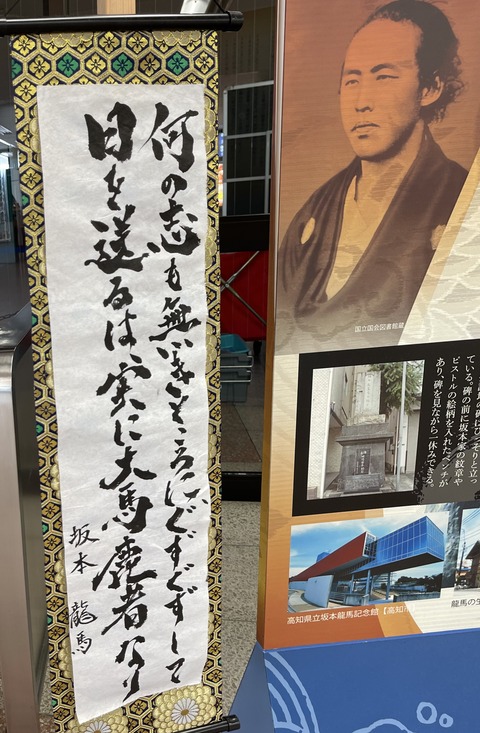 何の志も無きところに、ぐずぐずして
日を送るは、実に大馬鹿者なり
坂本 龍馬
国立国会図書館蔵
りと立っ
ている。碑の前に坂本家の紋章や
ピストルの絵柄を入れたベンチが
あり、碑を見ながら一休みできる。
高知県立坂本龍馬記念館【高知市】
龍馬の生